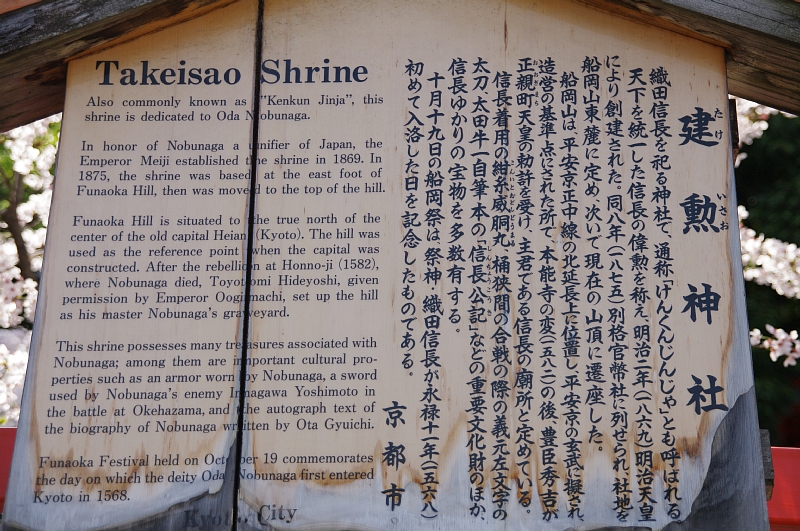 Takeisao Shrine
Also commonly known as "Kenkun Jinja", this
shrine is dedicated to Oda Nobunaga.
In honor of Nobunaga a unifier of Japan, the
Emperor Meiji established the shrine in 1869. In
1875, the shrine was based at the east foot of
Funaoka Hill, then was moved to the top of the hill.
Funaoka Hill is situated to the true north of the
center of the old capital Heian (Kyoto). The hill was
used as the reference point when the capital was
constructed. After the rebellion at Honno-ji (1582),
where Nobunaga died, Toyotomi Hideyoshi, given
permission by Emperor Oogimachi, set up the hill
as his master Nobunaga's graveyard.
This shrine possesses many treasures associated with
Nobunaga; among them are important cultural pro-
perties such as an armor worn by Nobunaga, a sword
used by Nobunaga's enemy Imagawa Yoshimoto in
the battle at Okehazama, and the autograph text of
the biography of Nobunaga written by Ota Gyuichi.
Funaoka Festival held on October 19 commemorates
the day on which the deity Oda Nobunaga first entered
Kyoto in 1568.
Kyoto City
建勲神社
たけ いさお
織田信長を祀る神社で、通称「けんくんじんじゃ」とも呼ばれる。
天下を統一した信長の偉勲を称え、明治二年(一八六九)明治天皇
により創建された。同八年(一八七五)別格官幣社に列せられ、社地を
船岡山東麓に定め、次いで現在の山頂に遷座した。
船岡山は、平安京正中線の北延長上に位置し、平安京の玄武に擬され
造営の基準点にされた所で、本能寺の変(一五八二)の後、豊臣秀吉が
正親町天皇の勅許を受け、主君である信長の廟所と定めている。
信長着用の紺糸威胴丸、桶狭間の合戦の際の義元左文字の
太刀、太田牛一自筆本の「信長公記」などの重要文化財のほか、
信長ゆかりの宝物を多数有する。
十月十九日の船岡祭は、祭神、織田信長が永禄十一年(一五六八)
初めて入洛した日を記念したものである。
京都市